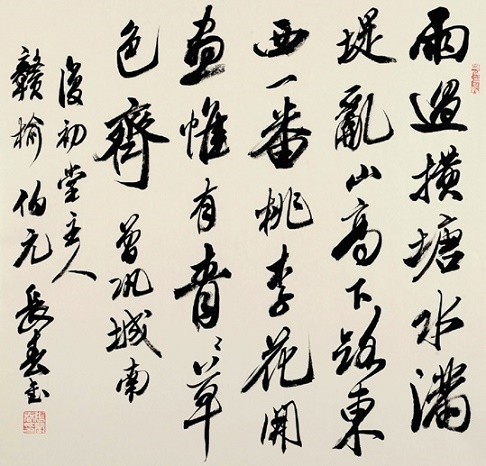 雨過橫塘水滿
堤亂山高下路東
西一番桃李花開
盡惟有青〻草
色齊 曾巩城南
復初堂主人
贛榆伯元長春書